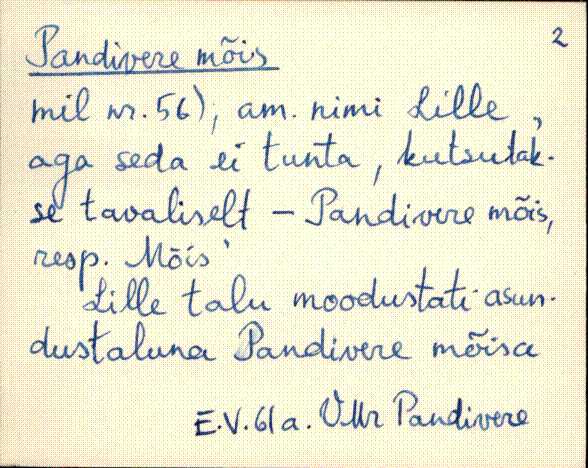 2
Pandivere mõis
mil nr. 56); am. nimi Lille,
aga seda ei tunta, kutsutak-
se tavaliselt – Pandivere mõis,
resp. Mõis'
Lille talu moodustati asun-
dustaluna Pandivere mõisa
E.V. 61 a. VMr Pandivere